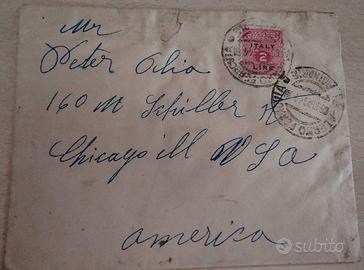 Mr
Peter Olia
160 M Schiller
Chicago Ill U S A
America
ITALY
2
LIRE
subito